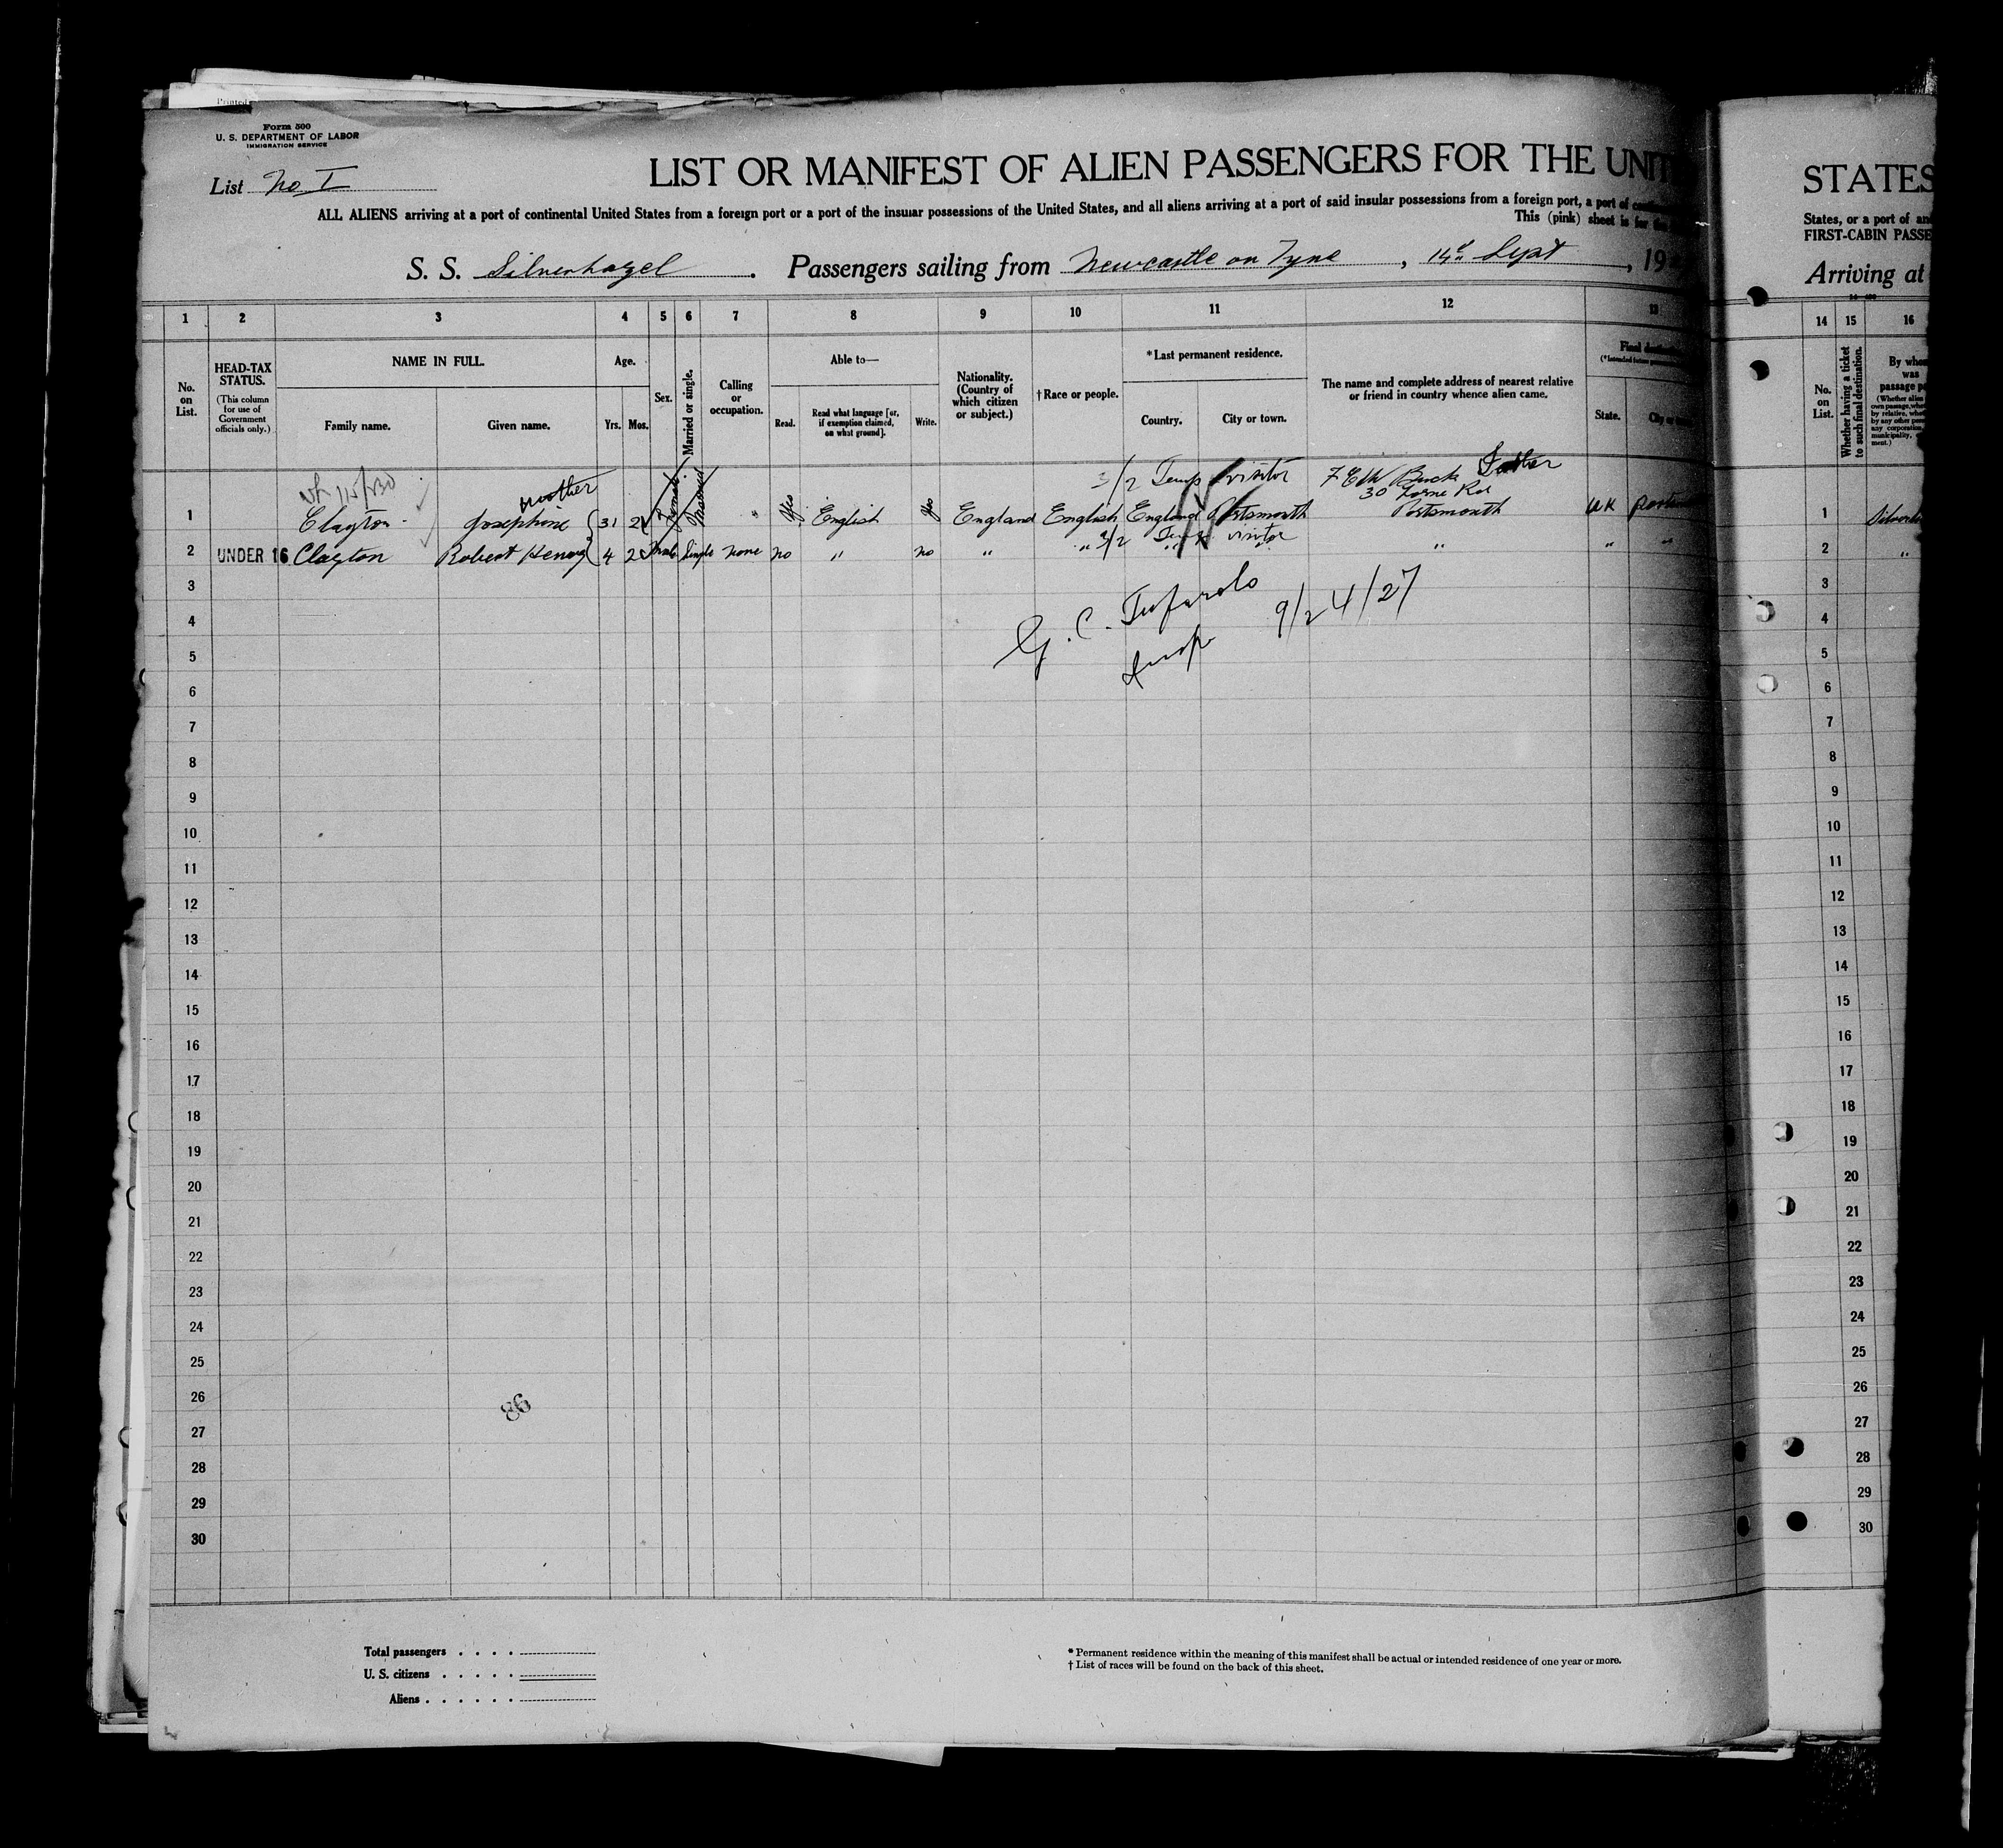 Printed
Form 500
U. S. DEPARTMENT OF LABOR
IMMIGRATION SERVICE
List No. I
LIST OR MANIFEST OF ALIEN PASSENGERS FOR THE UNIT
ALL ALIENS arriving at a port of continental United States from a foreign port or a port of the insular possessions of the United States, and all aliens arriving at a port of said insular possessions from a foreign port, a port of
This (pink) sheet is for
S. S. Silverhazel . Passengers sailing from Newcastle on Tyne , 14th Sept , 19
1 2 3 4 5 6 7 8 9 10 11 12 13
No. on List.
HEAD-TAX STATUS.
(This column for use of Government officials only.)
NAME IN FULL.
Family name. Given name.
Age.
Yrs. Mos.
Sex.
Married or single.
Calling or occupation.
Able to—
Read. Read what language [or, if exemption claimed, on what ground]. Write.
Nationality. (Country of which citizen or subject.)
†Race or people.
*Last permanent residence.
Country. City or town.
The name and complete address of nearest relative or friend in country whence alien came.
Final
State. City or
mother 3/2 Temp visitor Father
30 Lorne Rd
1 Clayton Josephine 31 2 Female Married " Yes English Yes England English England Portsmouth Portsmouth UK
3/2 Temp visitor
2 UNDER 16 Clayton Robert Henry 4 2 Male Single None no " no " " " " " " "
3
4
5
G. C. 9/24/27
Insp
6
7
8
9
10
11
12
13
14
15
16
17
18
19
20
21
22
23
24
25
26
86
27
28
29
30
Total passengers . . . .
U. S. citizens . . . . .
Aliens . . . . . .
* Permanent residence within the meaning of this manifest shall be actual or intended residence of one year or more.
† List of races will be found on the back of this sheet.
STATES
States, or a port of
FIRST-CABIN PASSE
Arriving at
14 15 16
No. on List.
Whether having a ticket to such final destination.
By whom was passage
1
2 "
3
4
5
6
7
8
9
10
11
12
13
14
15
16
17
18
19
20
21
22
23
24
25
26
27
28
29
30